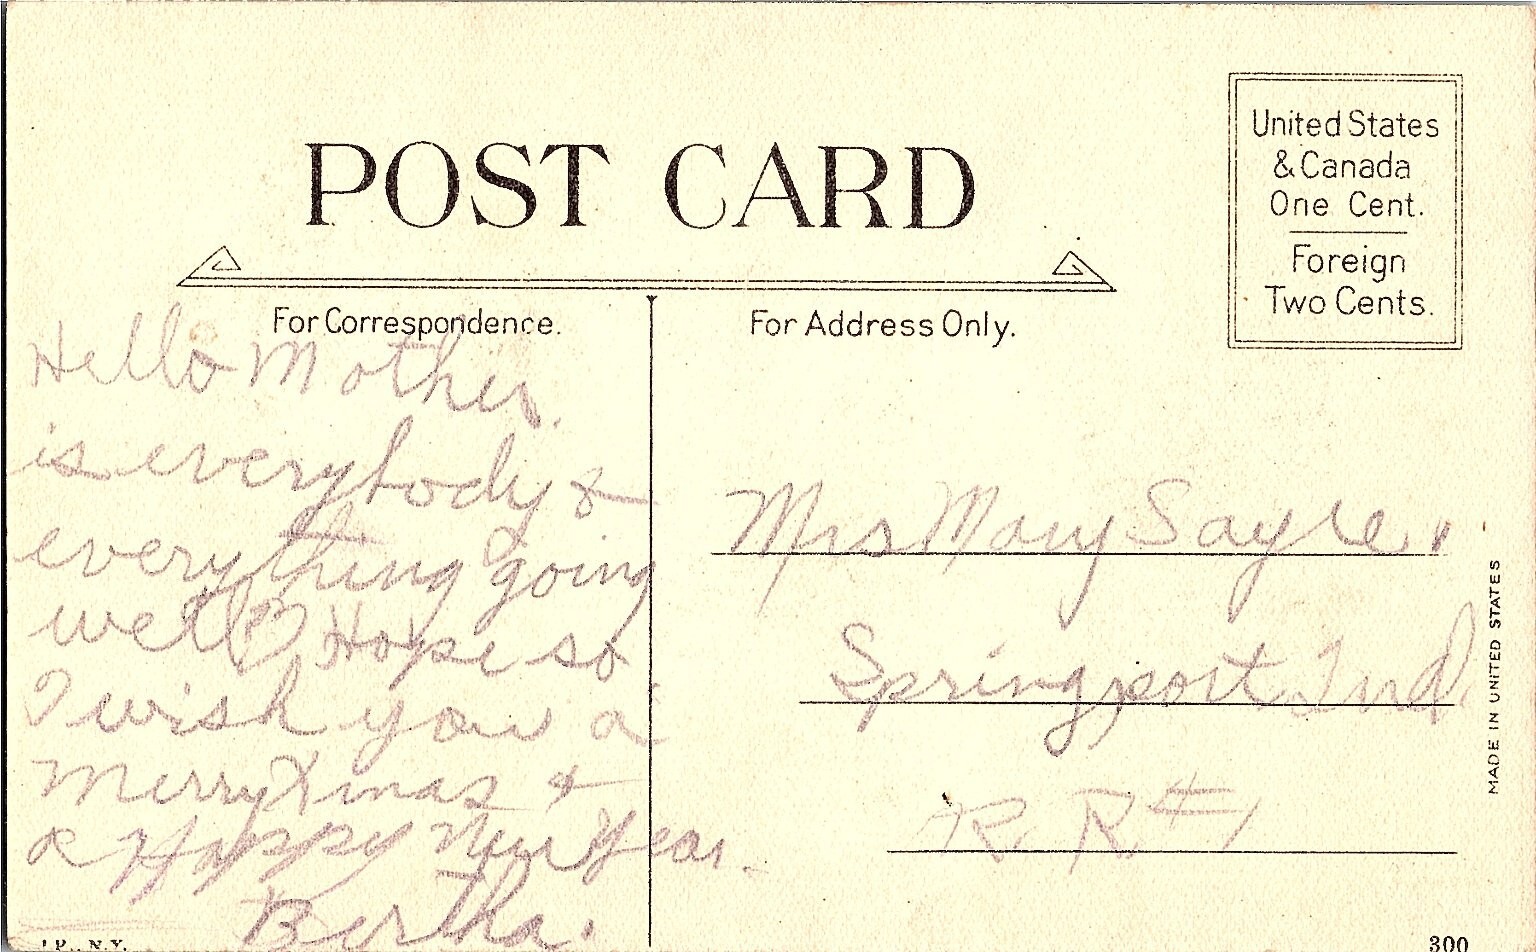 POST CARD
United States
& Canada
One Cent.
Foreign
Two Cents.
For Correspondence.
For Address Only.
Hello Mother.
is everybody &
everything going
well? Hope so
I wish you a
Merry Xmas &
a Happy New Year.
Bertha.
Mrs Mary Sayre.
Springport Ind.
R. R. #1
MADE IN UNITED STATES
I.P., N.Y.
300